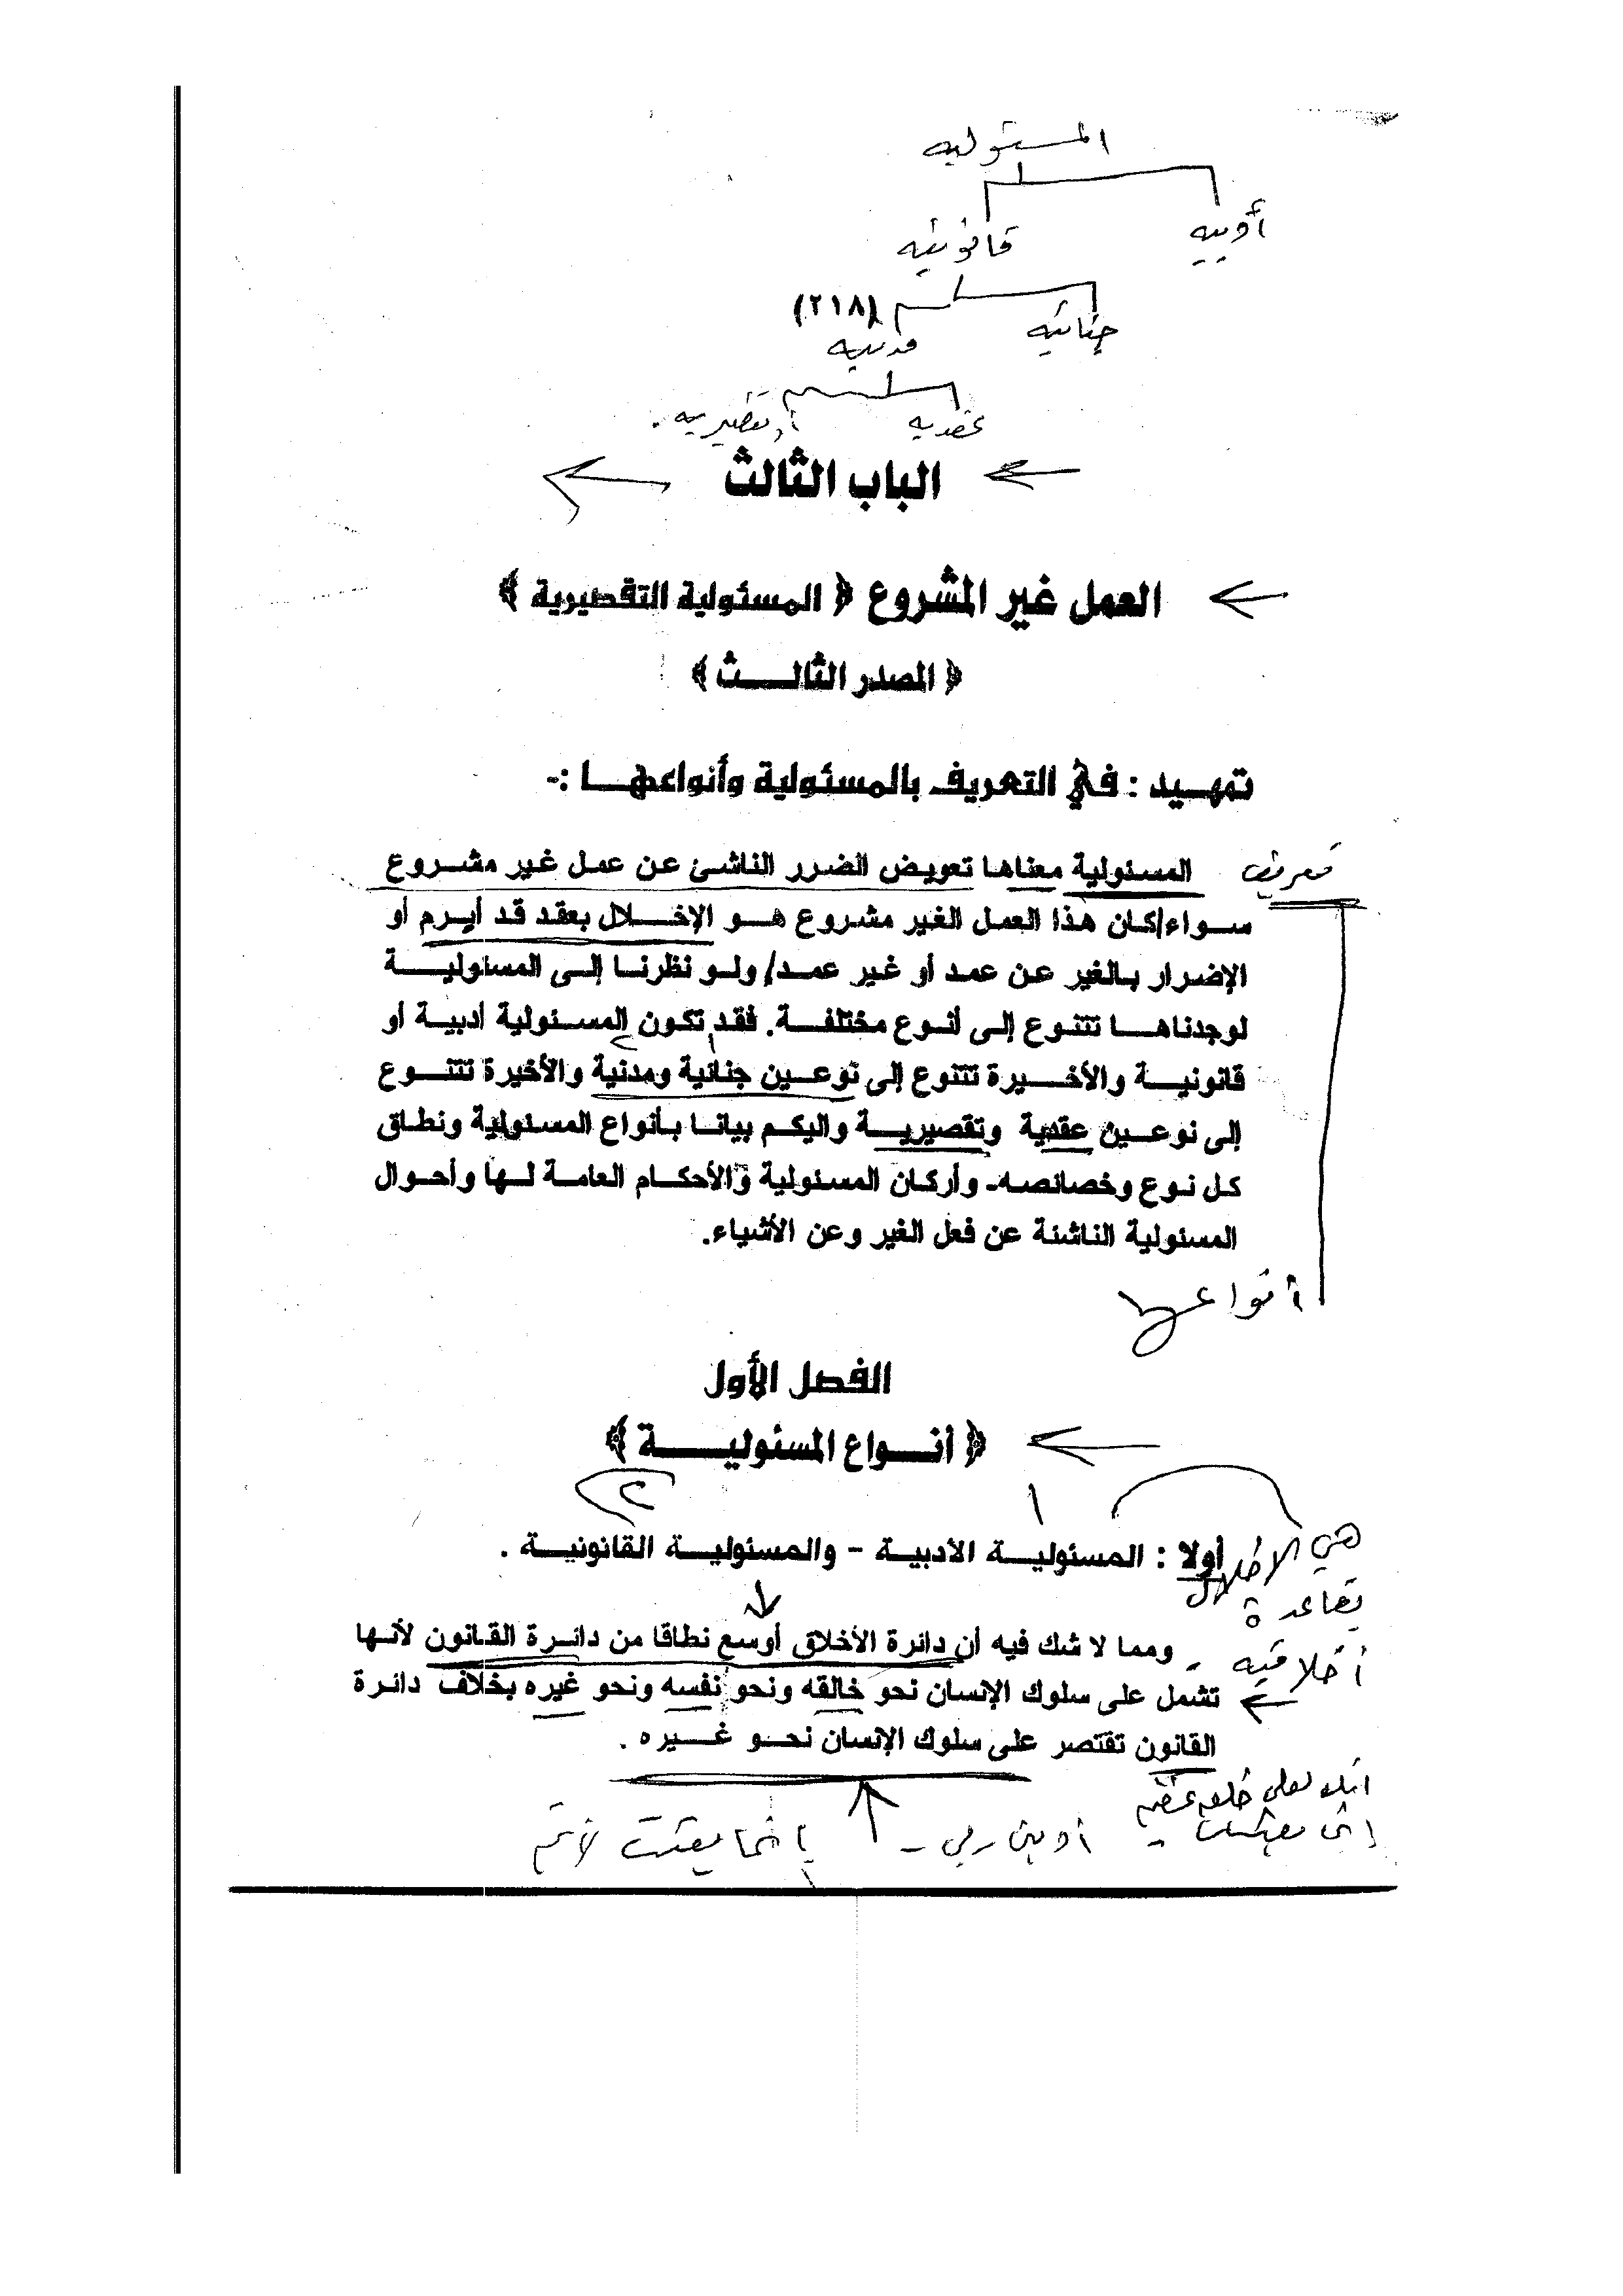 المسئوليه
أدبيه
قانونيه
(٢١٨)
جنائيه
مدنيه
عقديه
أو تقصيريه .
الباب الثالث
العمل غير المشروع ﴿ المسئولية التقصيرية ﴾
﴿ المصدر الثالـــــث ﴾
تمهـيد : في التعريف بالمسئولية وأنواعهـــا :-
تعريف
المسئولية معناها تعويض الضرر الناشئ عن عمل غير مشروع
سـواء/كان هذا العمل الغير مشروع هـو الإخـــلال بعقد قد أبرم أو
الإضرار بـالغير عن عمد أو غير عمد/ ولـو نظرنـا إلى المسئوليـــة
لوجدناهـــا تتنوع إلى أنوع مختلفـــة. فقد تكون المسئولية أدبيـة أو
قانونيـــة والأخـــيرة تتنوع إلى نوعـــين جنائية ومدنية والأخيرة تتنـــوع
إلى نوعـــين عقدية وتقصيريـــة واليكم بيانـا بـأنواع المسئولية ونطـاق
كـل نـوع وخصائصه- وأركان المسئولية والأحكـام العامـة لـهـا وأحـوال
المسئولية الناشئة عن فعل الغير وعن الأشياء.
أنواعها
الفصل الأول
﴿ أنـــواع المسئوليـــــة ﴾
١
٢
أولا : المسئوليـــة الأدبيـــة - والمسئوليـــة القانونيـــة .
هي الاخلال
بقاعدة
أخلاقيه -
ومما لا شك فيه أن دائرة الأخلاق أوسع نطاقا من دائـرة القـانون لأنـها
تشمل على سلوك الإنسان نحو خالقه ونحو نفسه ونحو غيره بخلاف دائـرة
القانون تقتصر على سلوك الإنسان نحـــو غـــيره .